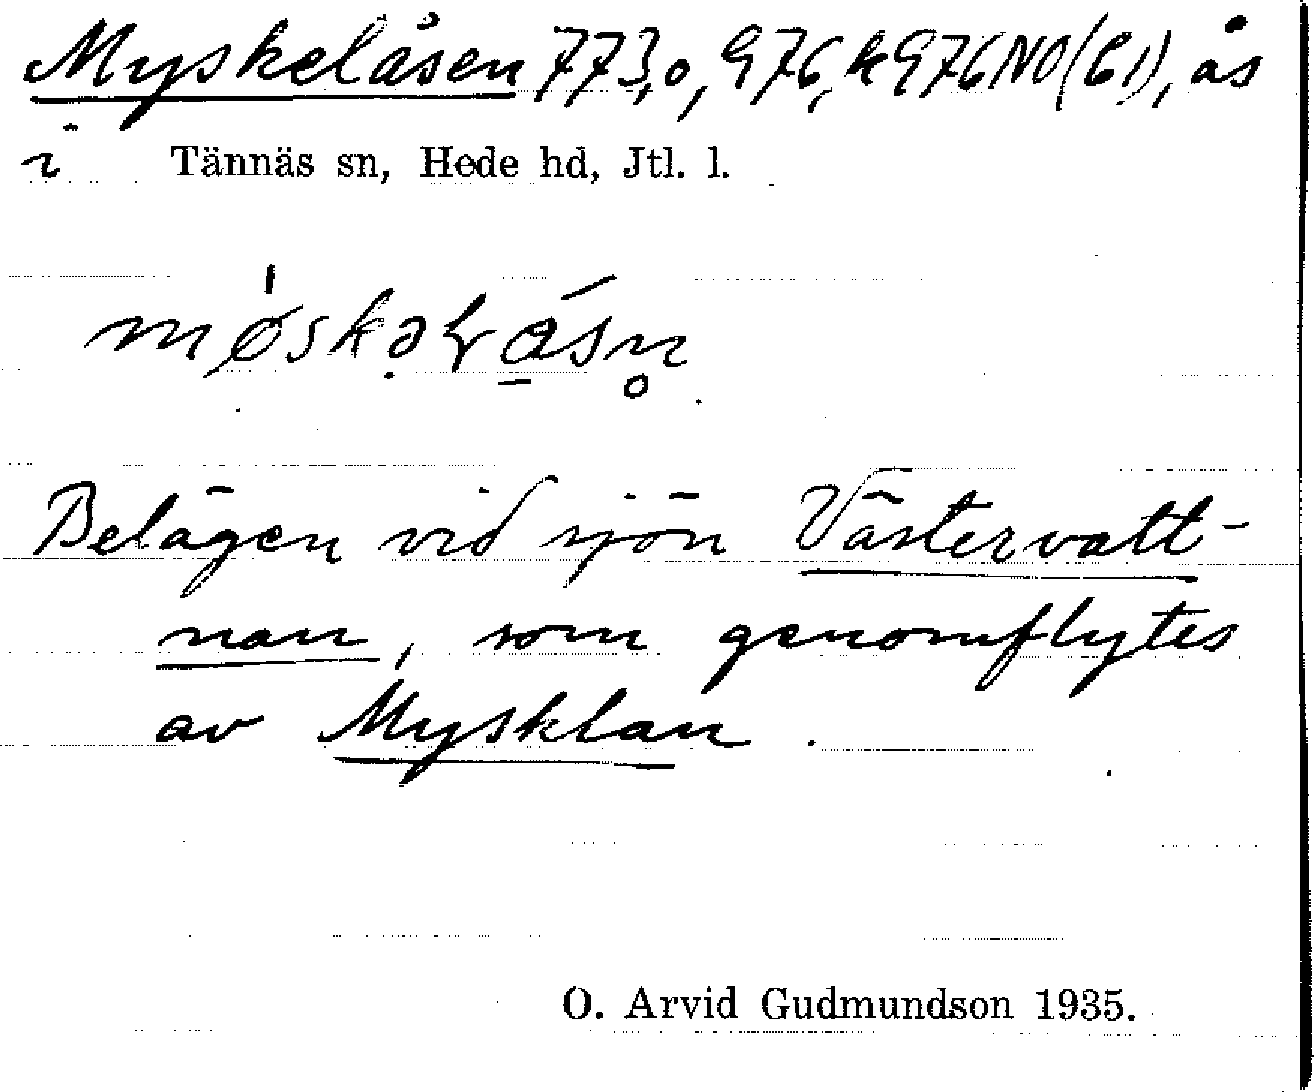 Myskelåsen 773,0, 976, k976NO(61), ås
i Tännäs sn, Hede hd, Jtl. l.
Belägen vid sjön Västervatt-
nan, som genomflytes
av Mysklan.
O. Arvid Gudmundson 1935.